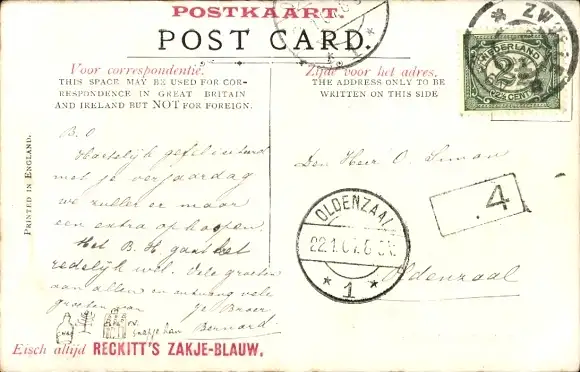 POSTKAART.
POST CARD.
Voor correspondentie.
THIS SPACE MAY BE USED FOR COR-
RESPONDENCE IN GREAT BRITAIN
AND IRELAND BUT NOT FOR FOREIGN.
Zijde voor het adres.
THE ADDRESS ONLY TO BE
WRITTEN ON THIS SIDE
PRINTED IN ENGLAND.
ZW
NEDERLAND
2½
CENT
B. O
Hartelijk gefeliciteerd
met je verjaardag
we zullen er maar
een extra op hopen.
Het B. gaat het
redelijk wel. Vele groeten
aan allen en ontvang vele
groeten van je Broer
Bernard
Den Heer O.
OLDENZAAL
22.1
1
.4
Oldenzaal
Eisch altijd RECKITT'S ZAKJE-BLAUW.